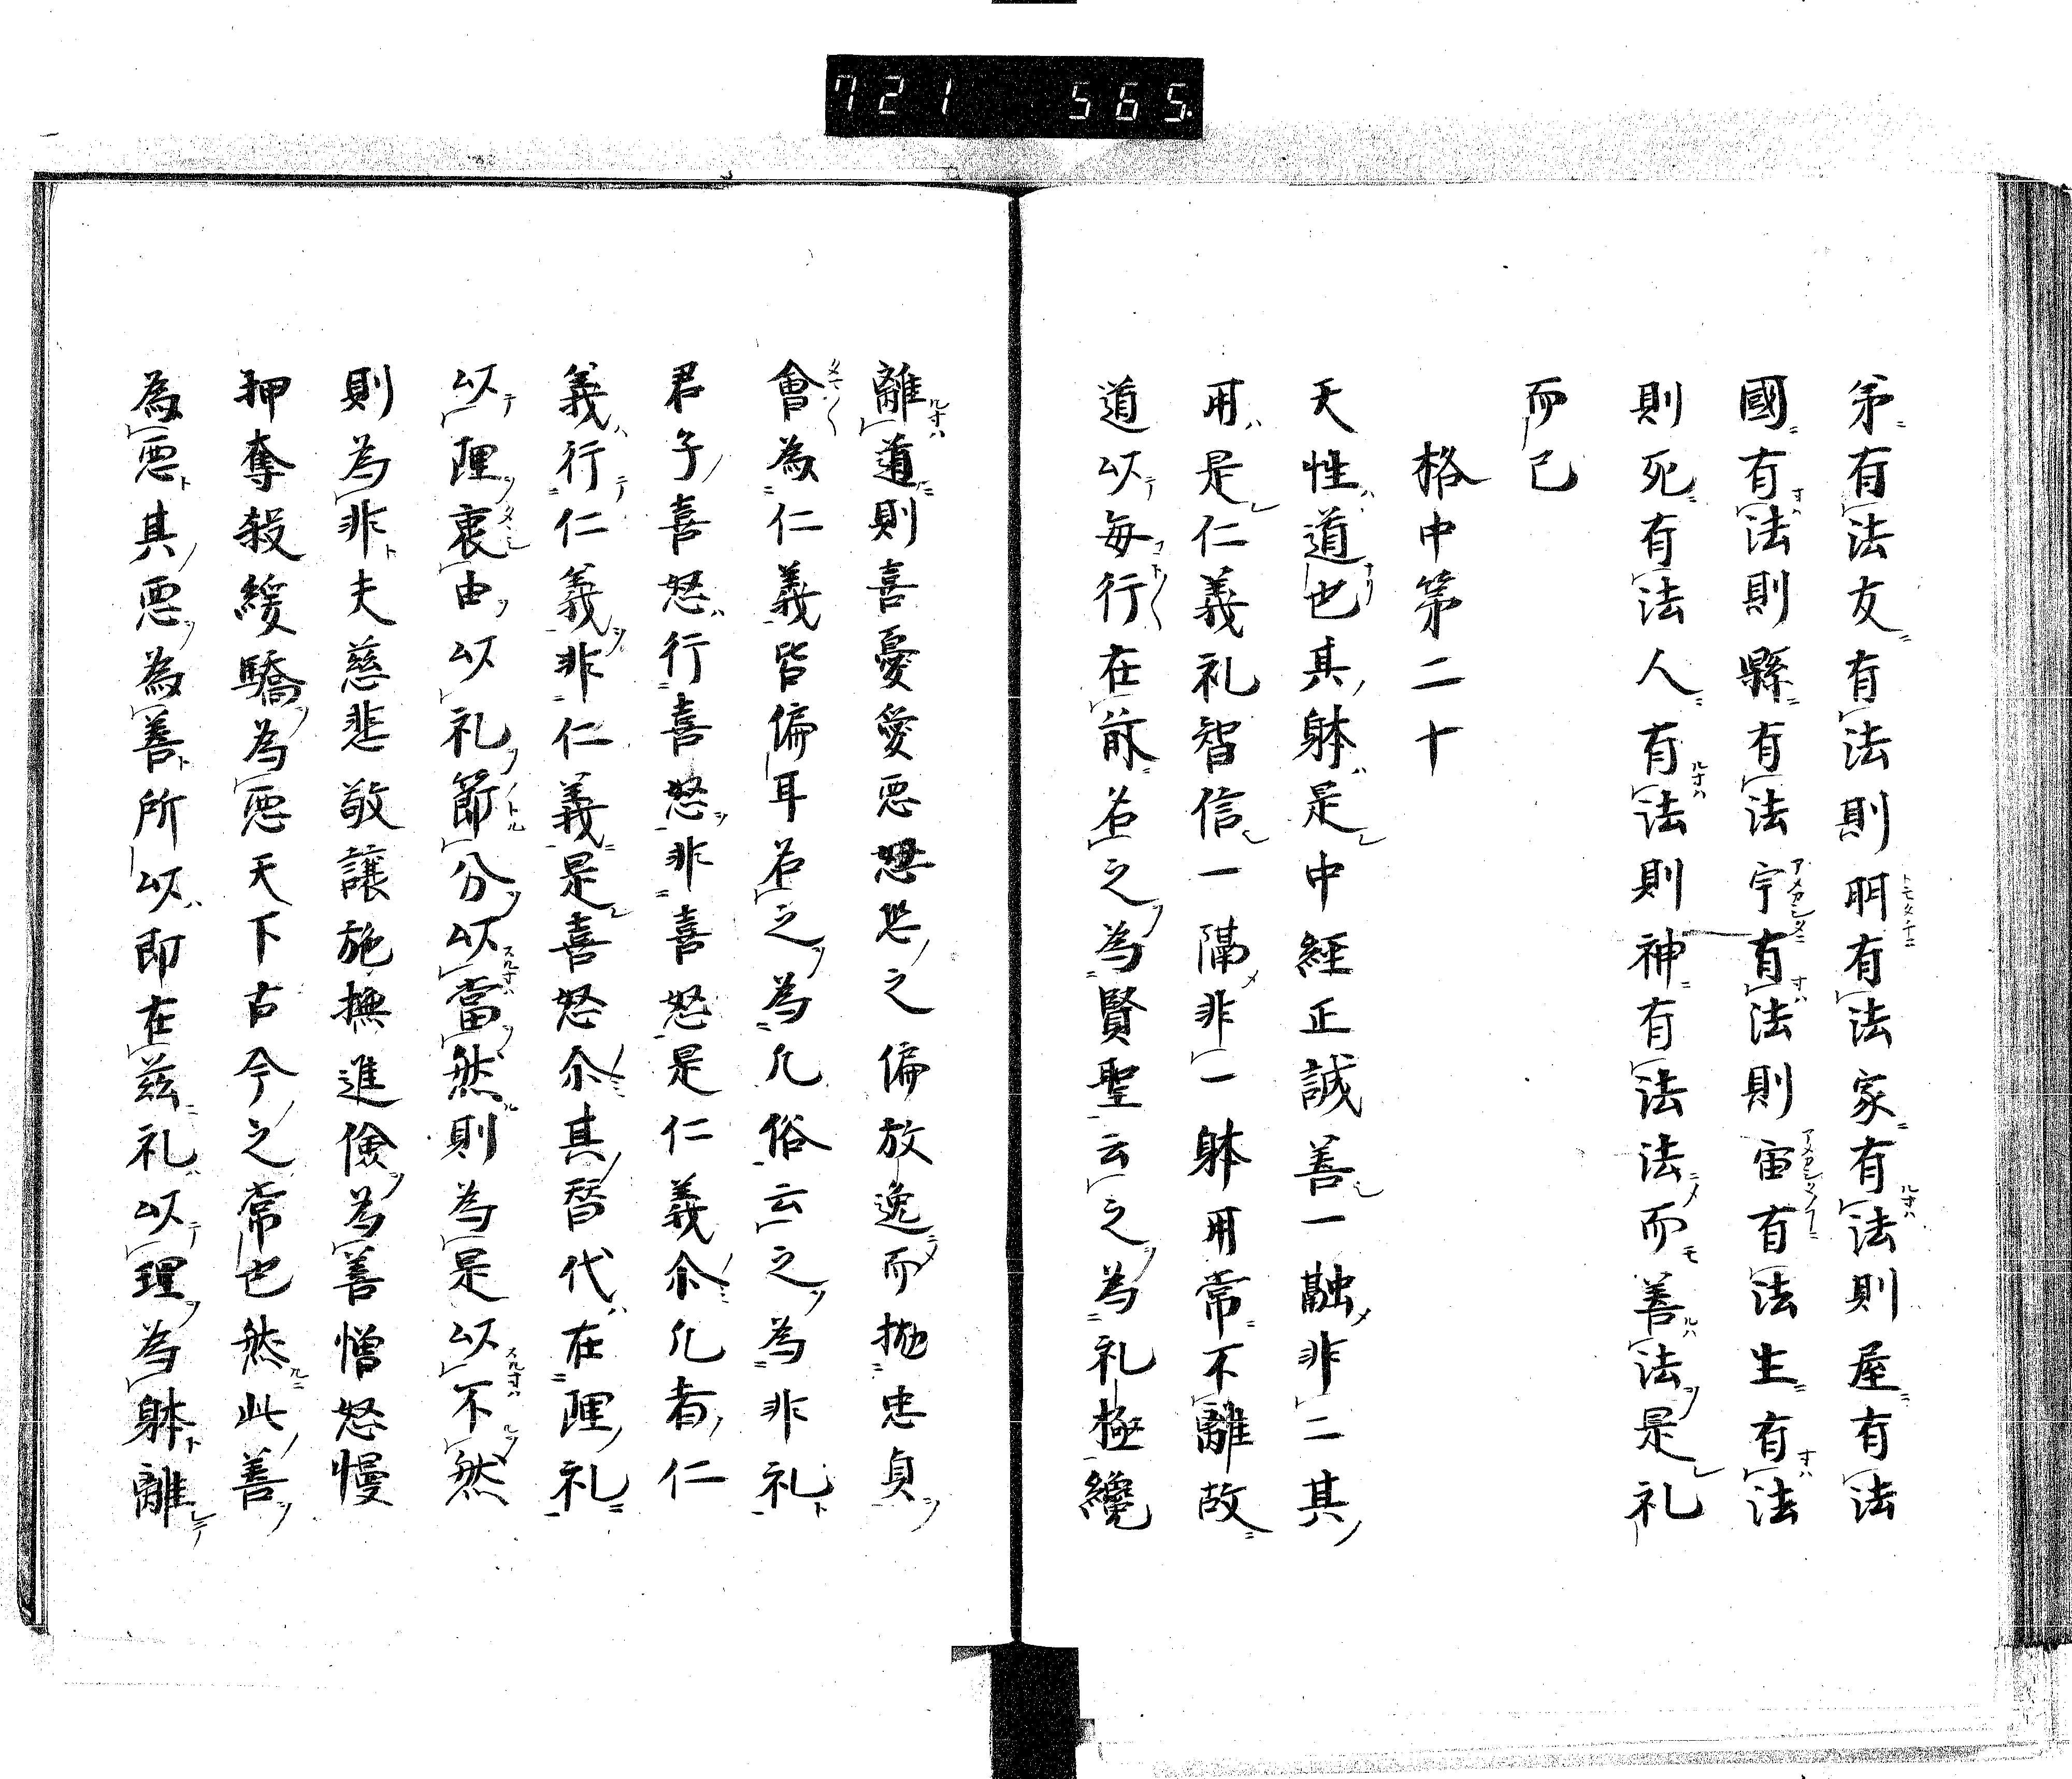 721 565.
弟有法友有法則朋有法家有法則屋有法
國有法則縣有法宇有法則宙有法生有法
則死有法人有法則神有法法而善法是礼
而已
格中第二十
天性道也其躰是中經正誠善一融非二其
用是仁義礼智信一隔非一躰用常不離故
道以毎行在前名之為賢聖云之為礼極纔
離道則喜憂愛悪怒恐之偏放逸而拋忠貞
會為仁義皆偏耳名之為凡俗云之為非礼
君子喜怒行喜怒非喜怒是仁義尒凡者仁
義行仁義非仁義是喜怒尒其替代在理礼
以理衷由以礼節分以當然則為是以不然
則為非夫慈悲敬譲施撫進儉為善憎怒慢
押奪殺緩驕為悪天下古今之常也然此善
為悪其悪為善所以即在茲礼以理為躰離